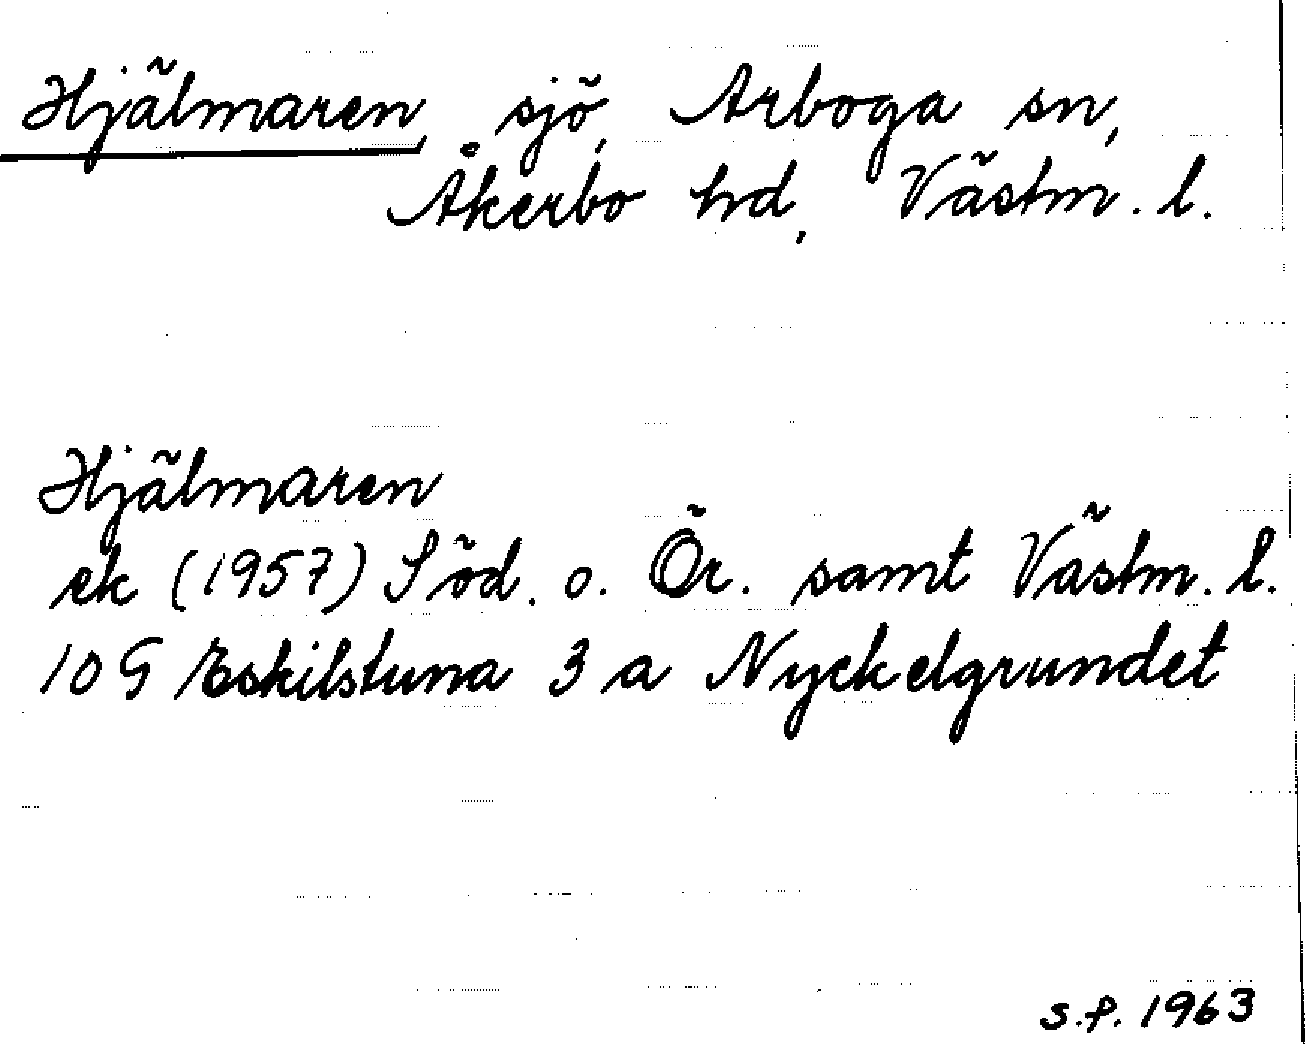 Hjälmaren, sjö, Arboga sn,
Åkerbo hd, Västm. l.
Hjälmaren
ek (1957) Söd. o. Ör. samt Västm. l.
10 G Eskilstuna 3 a Nyckelgrundet
s.f. 1963